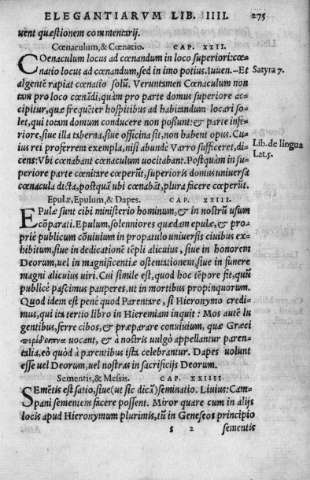 ELEGANTIARVM LIB. IIII. 275
uent quæstionem commentarij.
Cœnaculum, & Cœnatio. CAP. XXII.
COenaculum locus ad cœnandum in loco superiori: cœ=
natio locus ad cœnandum, sed in imo potius. Iuuen. – Et Satyra 7.
algentē rapiat cœnatio solū. Veruntamen Cœnaculum non
tam pro loco cœnādi, quàm pro parte domus superiore ac=
cipitur, quæ frequēter hospitibus ad habiandum locari so=
let, qui totam domum conducere non possunt: & parte infe=
riore, siue illa taberna, siue officina sit, non habent opus. Cu=
ius rei proferrem exempla, nisi abunde Varro sufficeret, di= Lib. de lingua
cens: Vbi cœnabant cœnaculum uocitabant. Postquàm in su= Lat. 5.
periore parte cœnitare cœperūt, superioris domus uniuersa
cœnacula dicta, postquā ubi cœnabāt, plura facere cœperūt.
Epulæ, Epulum, & Dapes. CAP. XXIII.
EPulæ sunt cibi ministerio hominum, & in nostrū usum
cōparati. Epulum, solenniores quædam epulæ, & pro=
priè publicum cōuiuium in propatulo uniuersis ciuibus ex=
hibitum, siue in dedicatione tēpli alicuius, siue in honorem
Deorum, uel in magnificentiæ ostentationem, siue in funere
magni alicuius uiri. Cui simile est, quod hoc tēpore fit, quū
publicè pascimus pauperes, ut in mortibus propinquorum.
Quod idem est penè quod Parentare, si Hieronymo credi=
mus, qui ita tertio libro in Hieremiam inquit: Mos autē lu
gentibus, ferre cibos, & præparare conuiuium, quæ Græci
uocant, & à nostris uulgò appellantur paren=
talia, eò quòd à parentibus ista celebrantur. Dapes uolunt
esse uel Deorum, uel nostras in sacrificijs Deorum.
Sementis, & Messis. CAP. XXIIII
SEmētis est satio, siue (ut sic dicā) seminatio. Liuius: Cam=
pani sementem facere possent. Miror quare cum in alijs
locis apud Hieronymum plurimis, tū in Geneseos principio
s 2 sementis